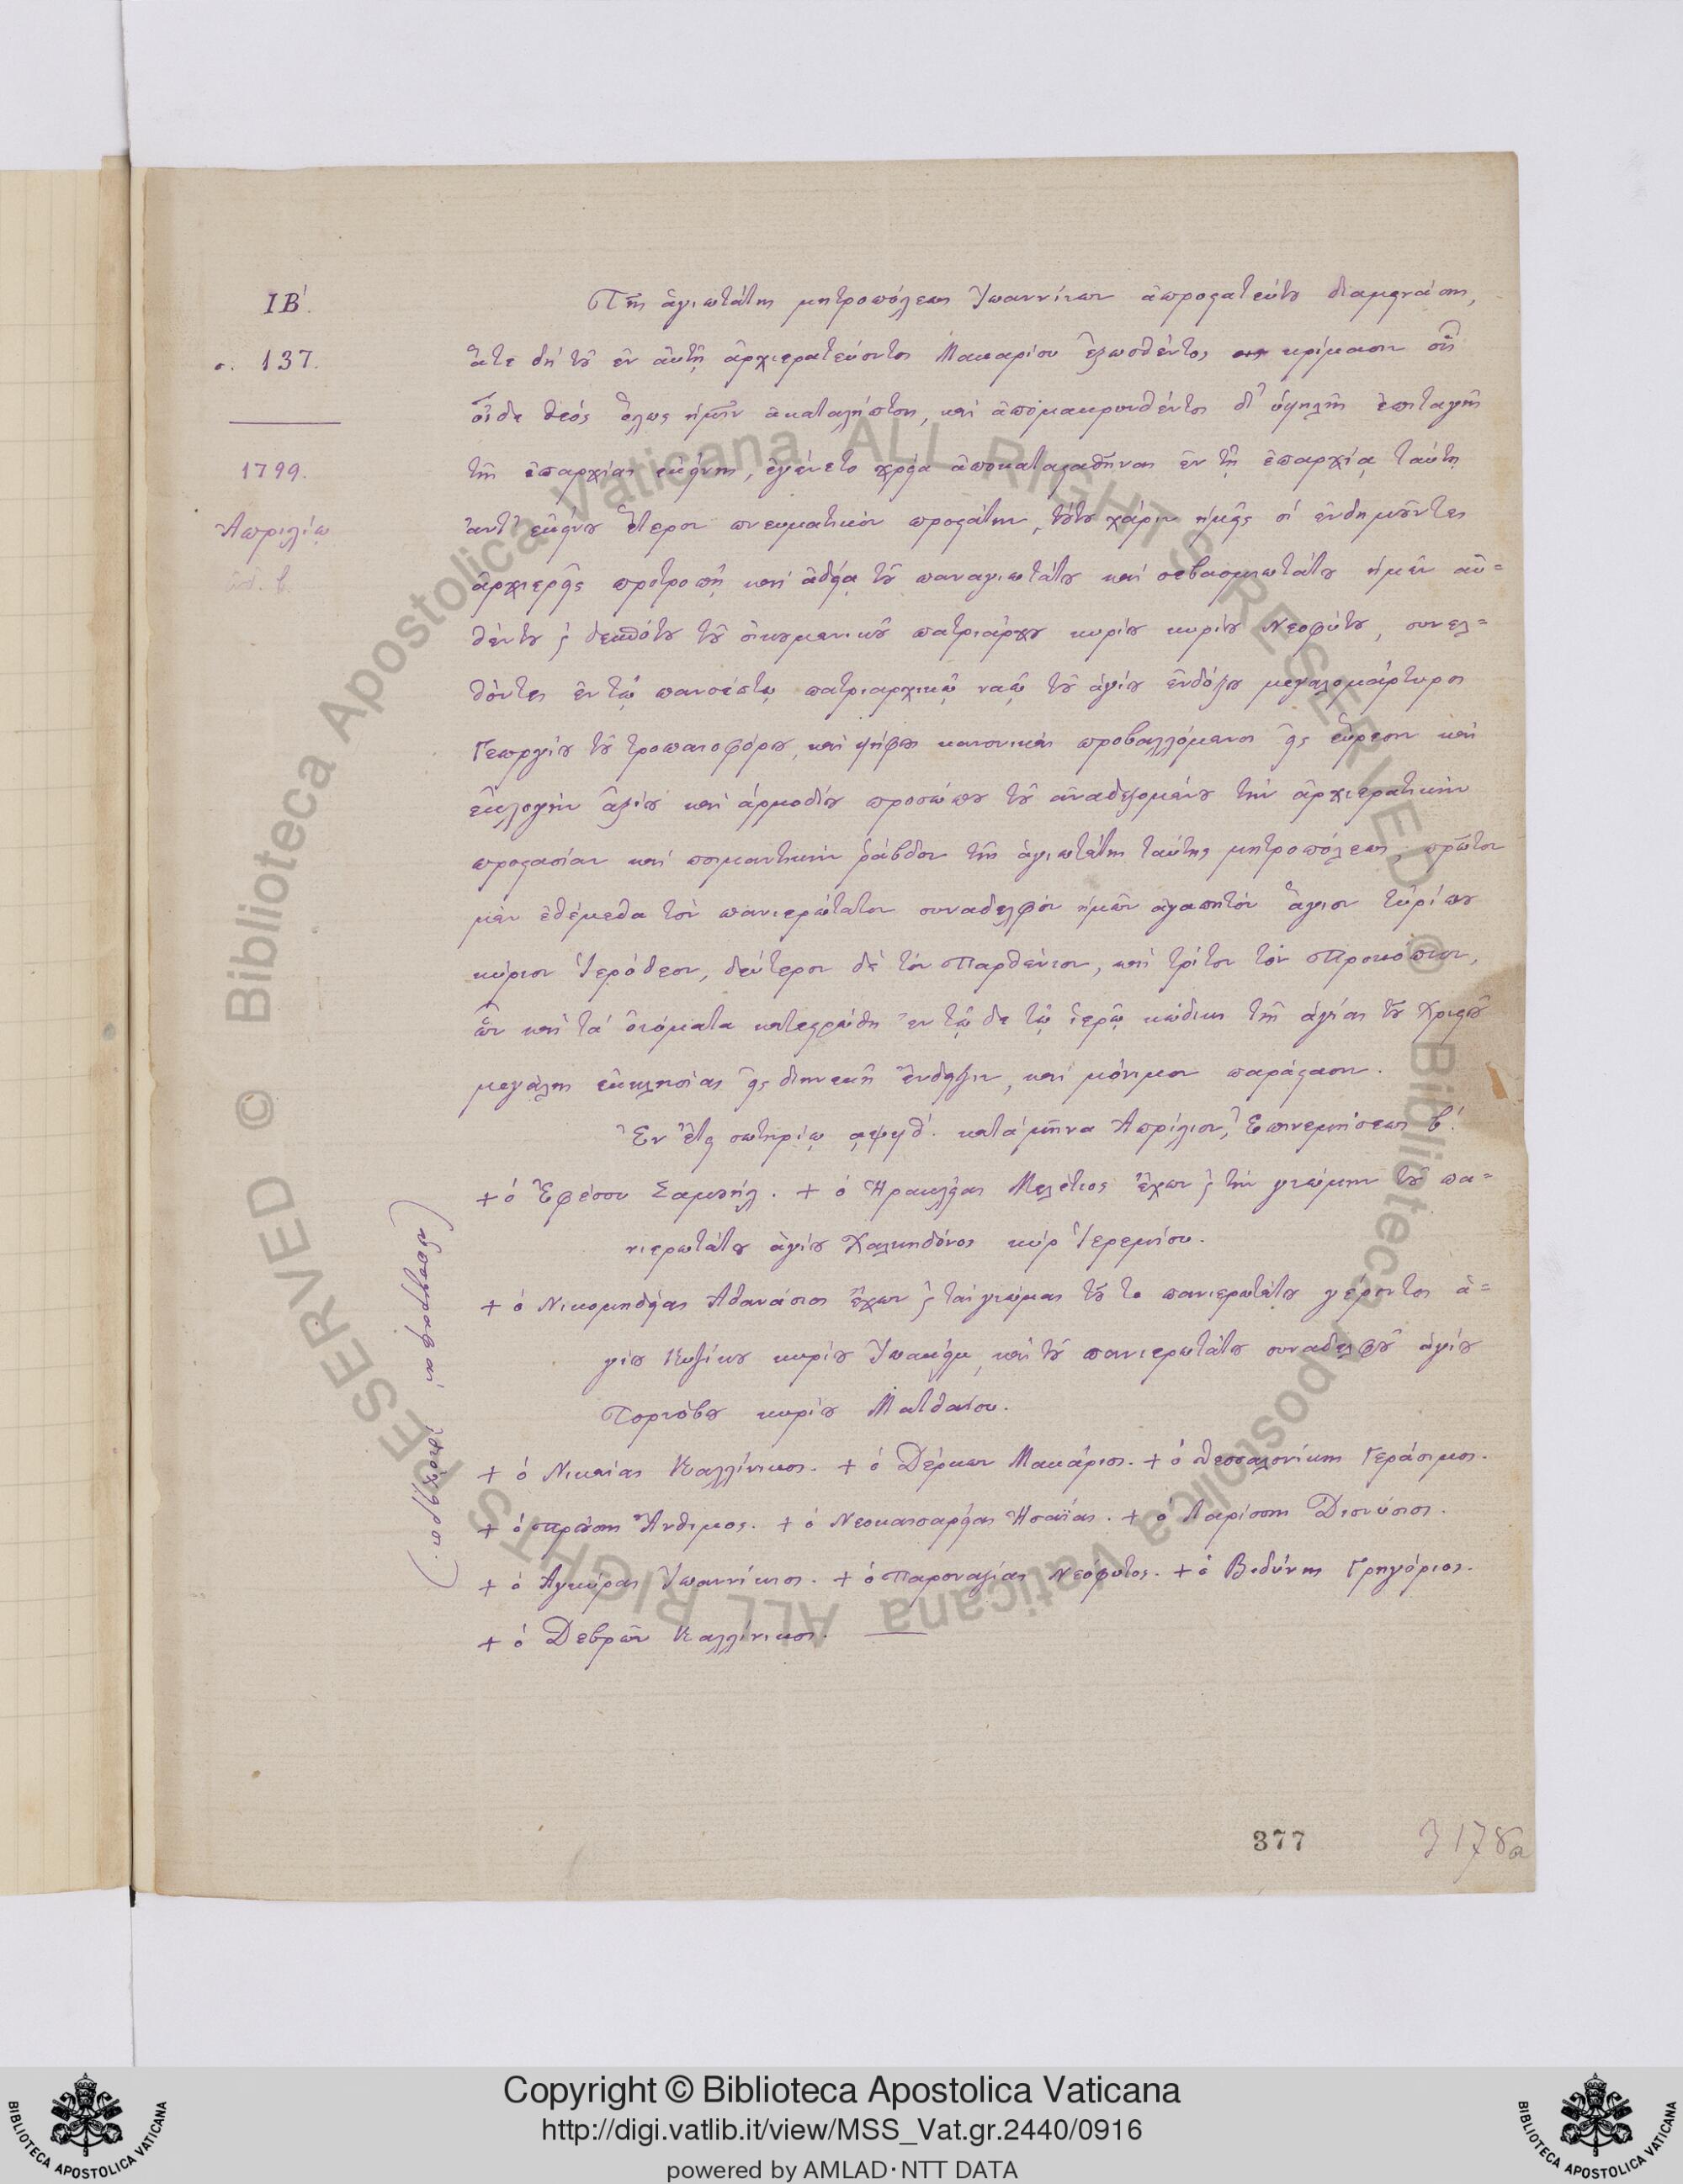 ΙΒ΄.
σ. 137.
1799.
Ἀπριλίῳ
ἰνδ. β.
Τῆς ἁγιωτάτης μητροπόλεως Ἰωαννίνων ἀπροστατεύτου διαμεινάσης,
ἅτε δὴ τοῦ ἐν αὐτῇ ἀρχιερατεύοντος Μακαρίου ἐξωσθέντος κρίμασιν οἷς
οἶδε θεός ὅλως ἡμῖν ἀκαταλήπτοις, καὶ ἀπομακρυνθέντος δι' ὑψηλῆς ἐπιταγῆς
τῆς ἐπαρχίας ἐκείνης, ἐγένετο χρεία ἀποκατασταθῆναι ἐν τῇ ἐπαρχίᾳ ταύτῃ
ἀντ' ἐκείνου ἕτερον πνευματικὸν προστάτην, τούτου χάριν ἡμεῖς οἱ ἐνδημοῦντες
ἀρχιερεῖς προτροπῇ καὶ ἀδείᾳ τοῦ παναγιωτάτου καὶ σεβασμιωτάτου ἡμῶν αὐ=
θέντου ϗ δεσπότου τοῦ οἰκουμενικοῦ πατριάρχου κυρίου κυρίου Νεοφύτου, συνελ=
θόντες ἐν τῷ πανσέπτῳ πατριαρχικῷ ναῷ τοῦ ἁγίου ἐνδόξου μεγαλομάρτυρος
Γεωργίου τοῦ τροπαιοφόρου, καὶ ψήφους κανονικὰς προβαλλόμενοι εἰς εὕρεσιν καὶ
ἐκλογὴν ἀξίου καὶ ἁρμοδίου προσώπου τοῦ ἀναδεξομένου τὴν ἀρχιερατικὴν
προστασίαν καὶ ποιμαντικὴν ῥάβδον τῆς ἁγιωτάτης ταύτης μητροπόλεως, πρῶτον
μὲν ἐθέμεθα τὸν πανιερώτατον συναδελφὸν ἡμῶν ἀγαπητὸν ἅγιον Εὐρίπου
κύριον Ἱερόθεον, δεύτερον δὲ τὸν Παρθένιον, καὶ τρίτον τὸν Προκόπιον,
ὧν καὶ τὰ ὀνόματα κατεστρώθη ἐν τῷδε τῷ ἱερῷ κώδικι τῆς ἁγίας τοῦ Χριστοῦ
μεγάλης ἐκκλησίας εἰς διηνεκῆ ἔνδειξιν, καὶ μόνιμον παράστασιν.
Ἐν ἔτει σωτηρίῳ ͵αψϟθ΄. κατὰ μῆνα Ἀπρίλιον, Ἐπινεμήσεως β΄.
+ ὁ Ἐφέσου Σαμουήλ. + ὁ Ἡρακλείας Μελέτιος ἔχων ϗ τὴν γνώμην τοῦ πα=
νιερωτάτου ἁγίου Χαλκηδόνος κὺρ Ἱερεμίου.
+ ὁ Νικομηδείας Ἀθανάσιος ἔχων ϗ τὰς γνώμας τοῦ τε πανιερωτάτου γέροντος ἁ=
γίου Κυζίκου κυρίου Ἰωακείμ, καὶ τοῦ πανιερωτάτου συναδελφοῦ ἁγίου
Τορνόβου κυρίου Ματθαίου.
+ ὁ Νικαίας Καλλίνικος. + ὁ Δέρκων Μακάριος. + ὁ Θεσσαλονίκης Γεράσιμος.
+ ὁ Προύσης Ἄνθιμος. + ὁ Νεοκαισαρείας Ἡσαΐας. + ὁ Λαρίσσης Διονύσιος.
+ ὁ Ἀγκύρας Ἰωαννίκιος. + ὁ Παροναξίας Νεόφυτος. + ὁ Βιδύνης Γρηγόριος.
+ ὁ Δεβρῶν Καλλίνικος.
377
Copyright © Biblioteca Apostolica Vaticana
http://digi.vatlib.it/view/MSS_Vat.gr.2440/0916
powered by AMLAD·NTT DATA
BIBLIOTECA APOSTOLICA VATICANA
BIBLIOTECA APOSTOLICA VATICANA